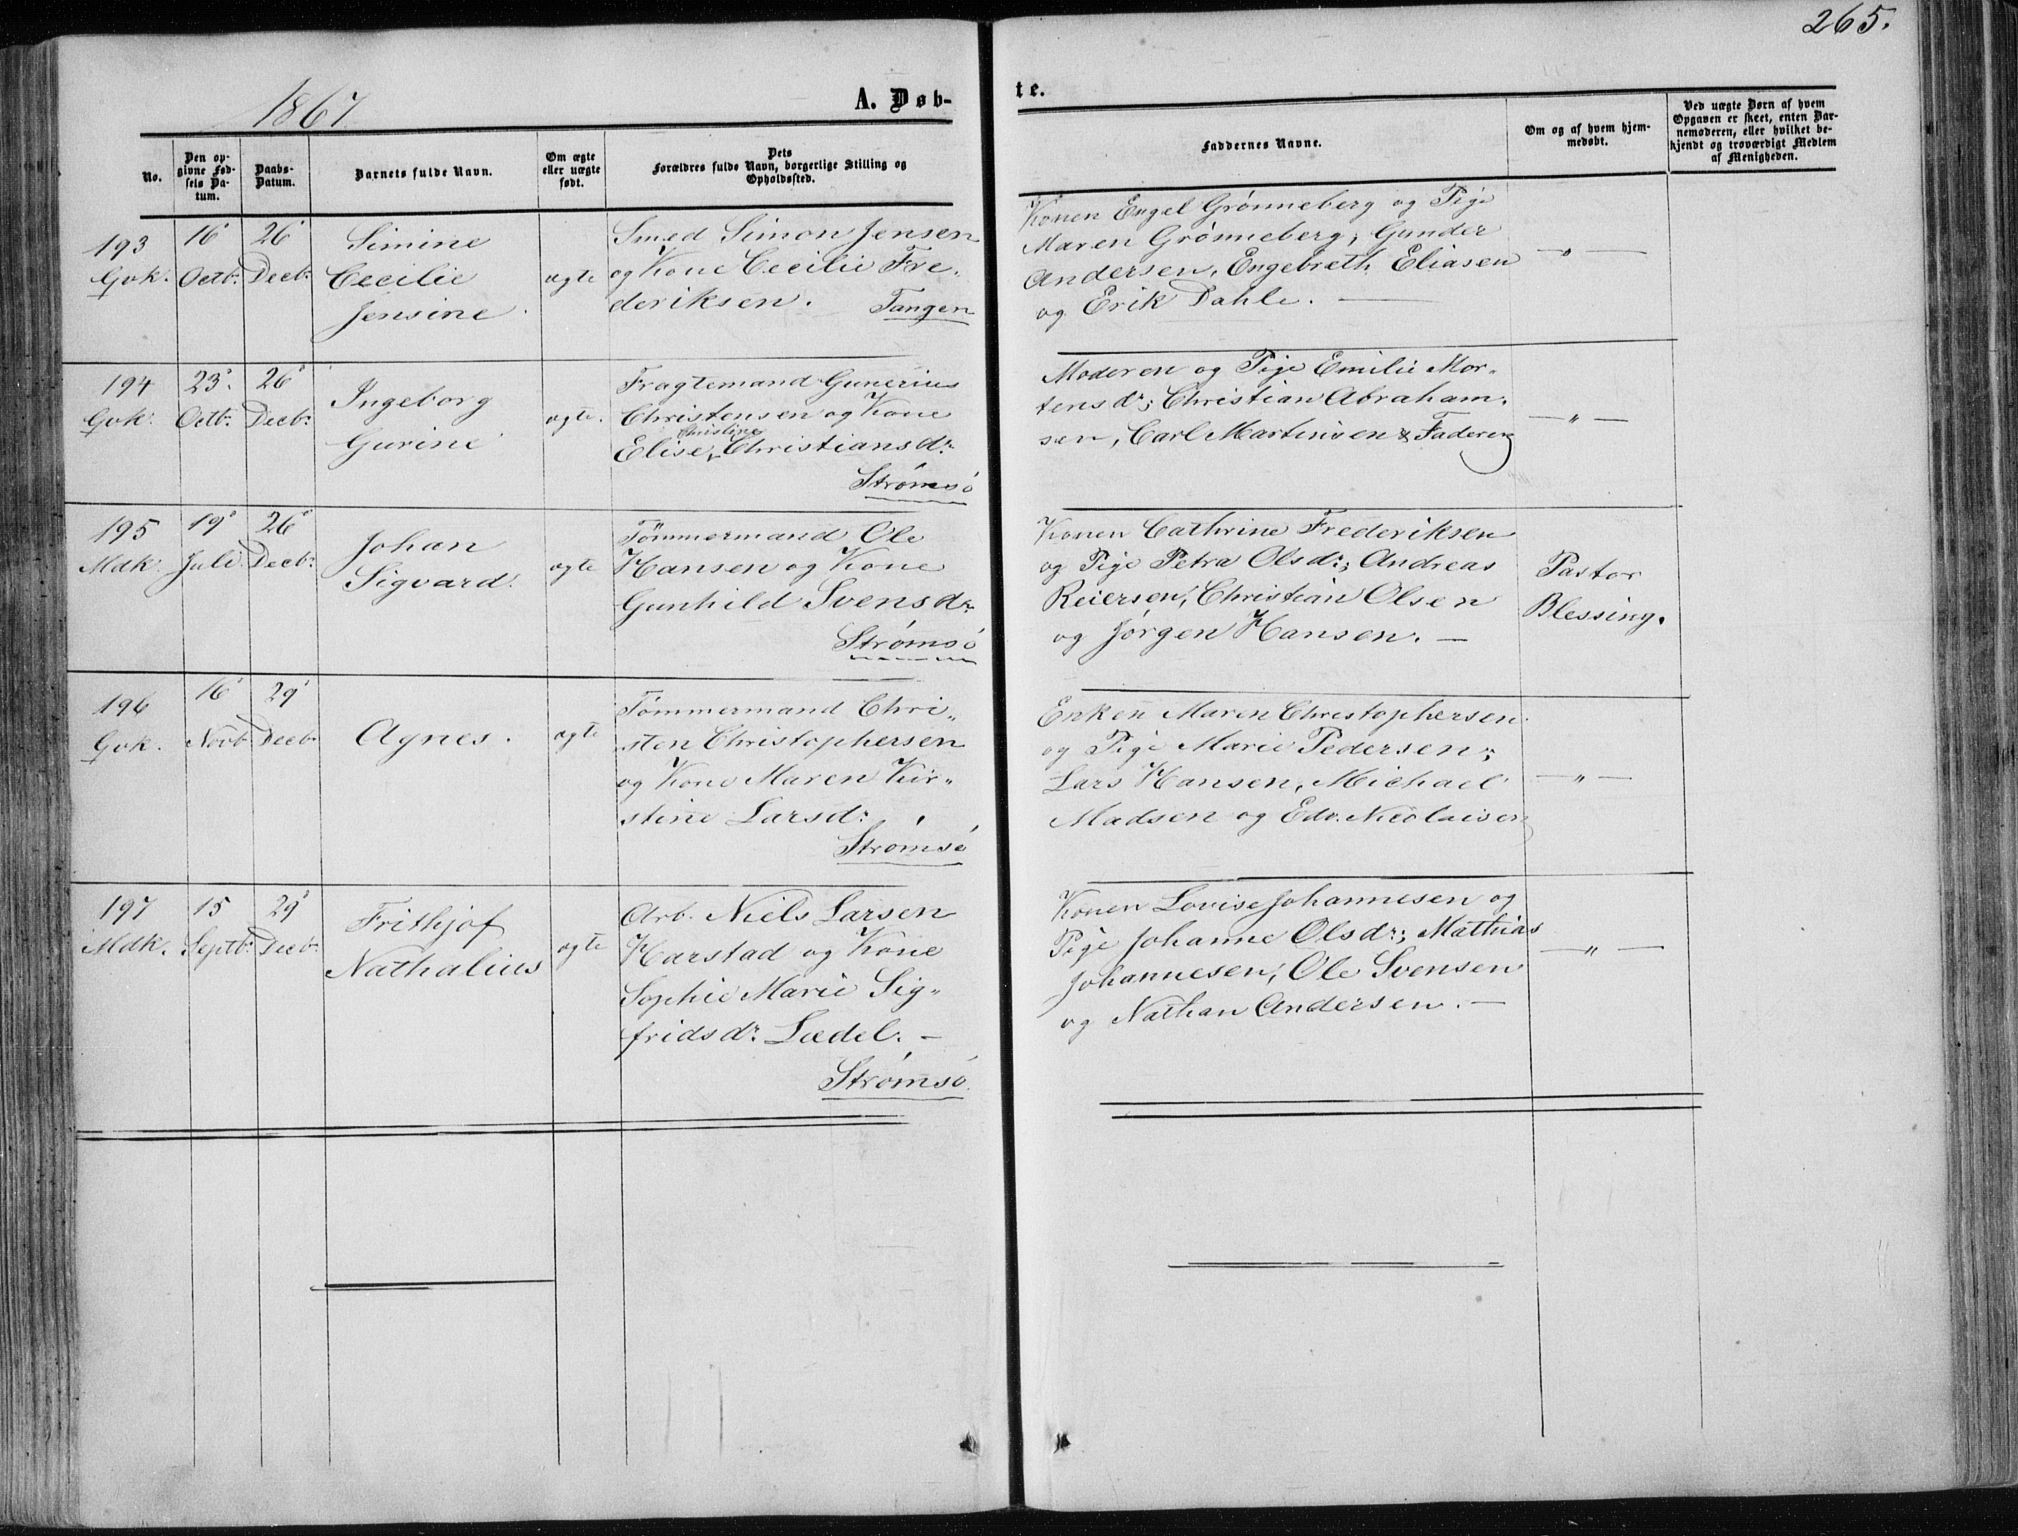 265.
1867.
A. Døb-
te.
No.
Den op-
givne Fød-
sels Da-
tum.
Daabs-
Datum.
Barnets fulde Navn.
Om ægte
eller uægte
født.
Dets
Forældres fulde Navn, borgerlige Stilling og
Opholdssted.
Faddernes Navne.
Om og af hvem hjem-
medøbt.
Ved uægte Børn af hvem
Opgaven er skeet, enten Bar-
nemoderen, eller hvilket be-
kjendt og troværdigt Medlem
af Menigheden.
193
Gvk.
16
Octbr
26
Decbr
Simine
Cecilie
Jensine
ægte
Smed Simon Jensen
og Kone Cecilie Fre-
deriksen.
Tangen
Konen Engel Grønneberg og Pige
Maren Grønneberg; Gunder
Andersen, Engebreth Eliasen
og Erik Dahle. —
— " —
194
Gvk.
23
Octbr
26
Decbr
Ingeborg
Gurine
ægte.
Fragtemand Gunerius
Christensen og Kone
Christine
Elise Christiansdr
Strømsø
Moderen og Pige Emilie Mor-
tensdr; Christian Abraham-
sen, Carl Martinsen & Faderen
— " —
195
Mdk.
19
Juli
26
Decbr
Johan
Sigvard.
ægte
Tømmermand Ole
Hansen og Kone
Gunhild Svensdr
Strømsø
Konen Cathrine Frederiksen
og Pige Petra Olsdr; Andreas
Reiersen, Christian Olsen
og Jørgen Hansen. —
Pastor
Blessing.
196
Gvk.
16
Novb
29
Decbr
Agnes.
ægte
Tømmermand Chri-
sten Christophersen
og Kone Maren Kir-
stine Larsdr
Strømsø
Enken Maren Christophersen
og Pige Marie Pedersen;
Lars Hansen, Michael
Madsen og Edv. Nicolaisen
— " —
197
Mdk.
15
Septbr
29
Decbr
Frithjof
Nathalius
ægte
Arb. Niels Larsen
Harstad og Kone
Sophie Marie Sig-
fridsdr Lædel. —
Strømsø.
Konen Lovise Johannesen og
Pige Johanne Olsdr; Mathias
Johannesen, Ole Svensen
og Nathan Andersen. —
— " —